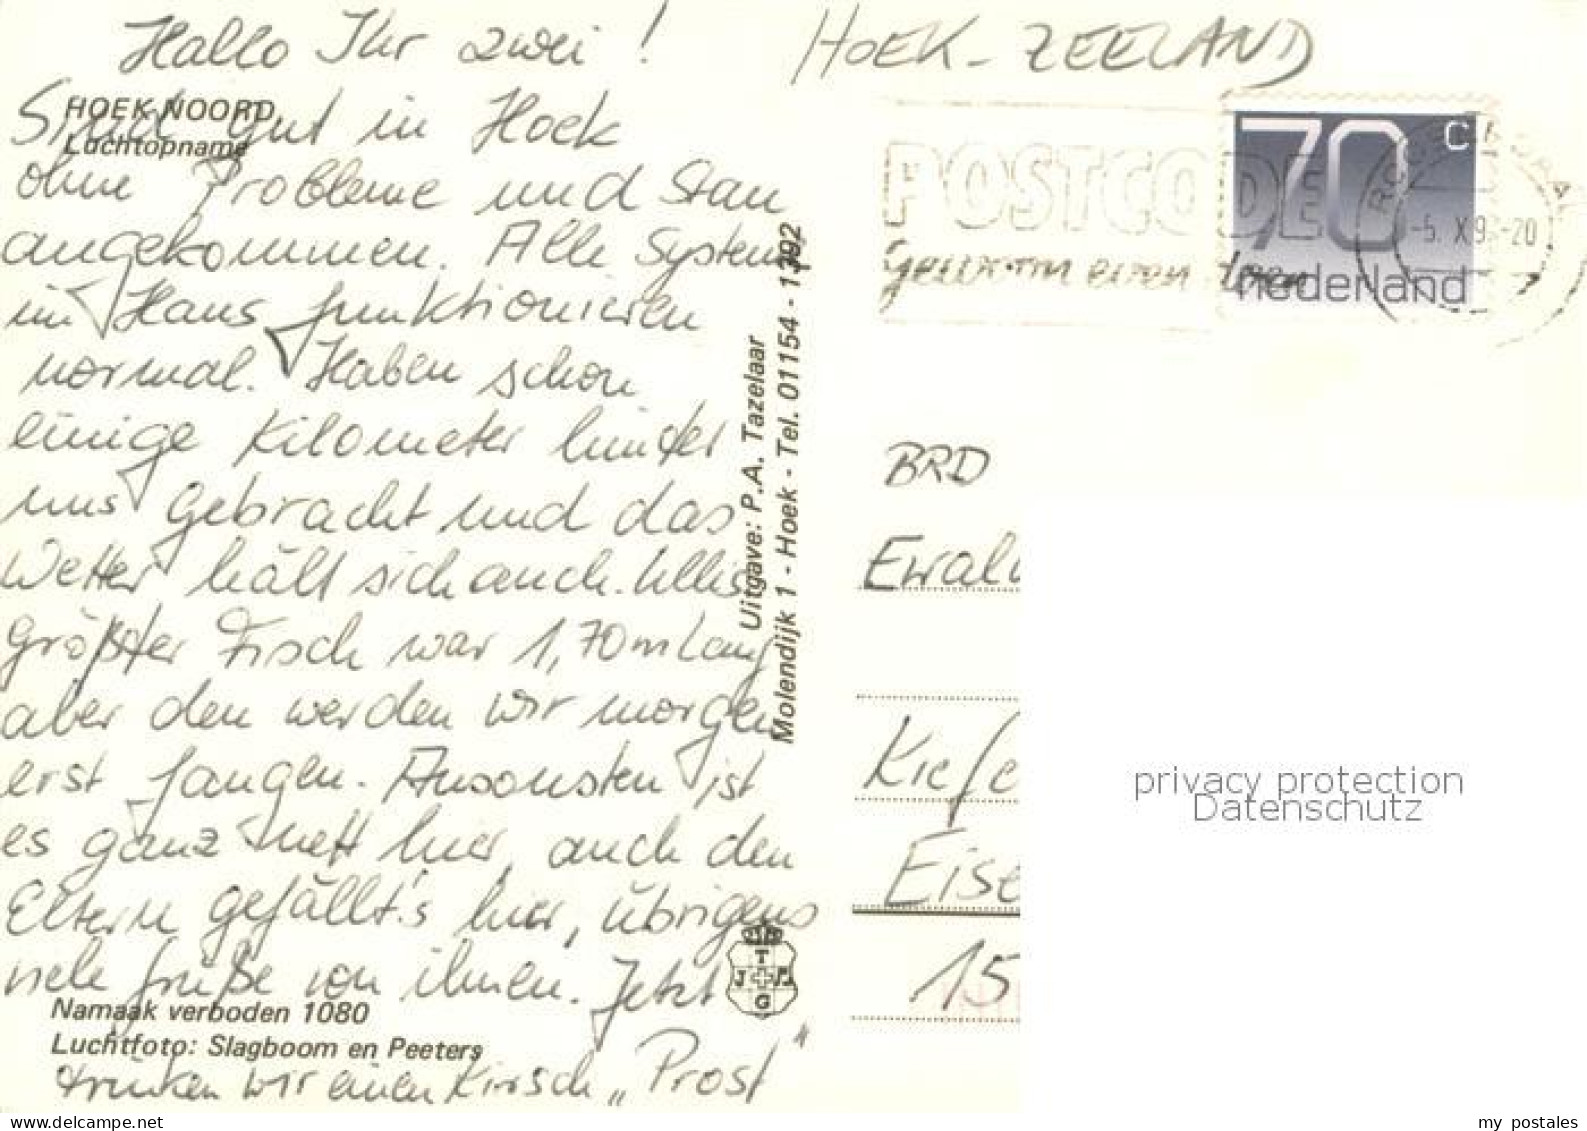 Hallo Ihr zwei !
HOEK - ZEELAND
HOEK NOORD,
Luchtopname
Sind gut in Hoek
ohne Probleme und Stau
angekommen. Alle Systeme
im Haus funktionieren
normal. Haben schon
einige Kilometer hinter
uns gebracht und das
Wetter hält sich auch. Ullis
größter Fisch war 1,70m lang
aber den werden wir morgen
erst fangen. Ansonsten ist
es ganz nett hier, auch den
Eltern gefällt's hier, übrigens
viele grüße von ihnen. Jetzt
trinken wir einen Kirsch „Prost"
Namaak verboden 1080
Luchtfoto: Slagboom en Peeters
Uitgave: P.A. Tazelaar
Molendijk 1 - Hoek - Tel. 01154 - 1392
T
J P
G
POSTCODE
gewoon even doen
70 c
nederland
-5. X 9 -20
BRD
Ewald
Kiefe
Eise
15
privacy protection
Datenschutz
mypostales.com
my postales